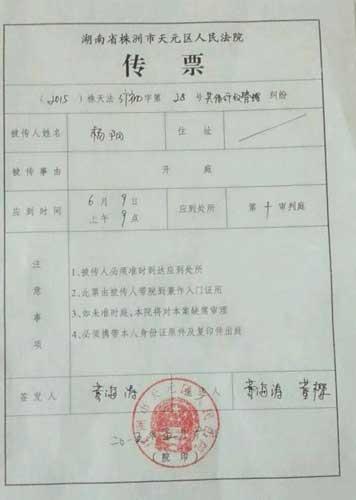 湖南省株洲市天元区人民法院
传票
（2015）株天法行初字第28号 纠纷
被传人姓名 杨阳 住址
被传事由 开庭
应到时间 6月9日 上午9点 应到处所 第十审判庭
注意事项
1、被传人必须准时到达应到处所
2、此票由被传人带院到兼作入门证用
3、如未准时庭,本院将对本案缺席审理
4、必须携带本人身份证原件及复印件出庭
签发人 黄海涛 人 黄海涛
（院印）